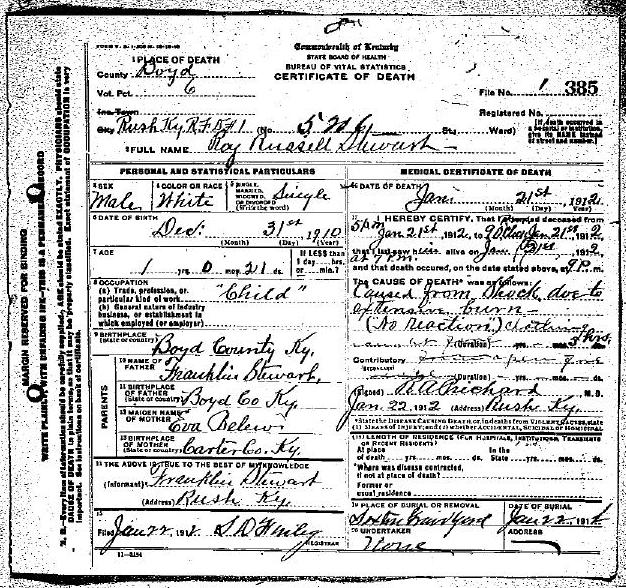 Commonwealth of Kentucky
STATE BOARD OF HEALTH
BUREAU OF VITAL STATISTICS
CERTIFICATE OF DEATH
1 PLACE OF DEATH
County Boyd
Vot. Pct. 6
Inc. Town
City Rush Ky R.F.D. #1 (No. St.; Ward)
File No. 1 385
Registered No.
[If death occurred in a hospital or institution, give its NAME instead of street and number.]
2 FULL NAME Roy Russell Stewart
PERSONAL AND STATISTICAL PARTICULARS
3 SEX Male
4 COLOR OR RACE White
5 SINGLE, MARRIED, WIDOWED, OR DIVORCED (Write the word) Single
6 DATE OF BIRTH
Dec. 31st 1910
(Month) (Day) (Year)
7 AGE
1 yrs. 0 mos. 21 ds.
If LESS than 1 day, hrs. or min.?
8 OCCUPATION
(a) Trade, profession, or particular kind of work "Child"
(b) General nature of industry business, or establishment in which employed (or employer)
9 BIRTHPLACE
(State or country) Boyd County Ky.
PARENTS
10 NAME OF FATHER Franklin Stewart,
11 BIRTHPLACE OF FATHER
(State or country) Boyd Co Ky.
12 MAIDEN NAME OF MOTHER Eva Belew
13 BIRTHPLACE OF MOTHER
(State or country) Carter Co. Ky.
14 THE ABOVE IS TRUE TO THE BEST OF MY KNOWLEDGE
(Informant) Franklin Stewart
(Address) Rush Ky.
15
Filed Jan 22, 1912
REGISTRAR
11-3184
MEDICAL CERTIFICATE OF DEATH
16 DATE OF DEATH Jan. 21st, 1912
(Month) (Day) (Year)
17 I HEREBY CERTIFY, That I attended deceased from
5 pm Jan 21st, 1912, to Jan 21st 1912
that I last saw him alive on Jan 21st 1912
and that death occurred, on the date stated above, at 9 P. m.
The CAUSE OF DEATH* was as follows:
Caused from Shock due to
extensive burn
(No reaction) clothing
(Duration) yrs. mos. ds. hrs.
Contributory
(Duration) yrs. mos. ds.
(Signed) Prichard M. D.
Jan. 22, 1912 (Address) Rush Ky.
*State the DISEASE CAUSING DEATH, or, in deaths from VIOLENT CAUSES, state (1) MEANS OF INJURY; and (2) whether ACCIDENTAL, SUICIDAL or HOMICIDAL
18 LENGTH OF RESIDENCE (FOR HOSPITALS, INSTITUTIONS, TRANSIENTS OR RECENT RESIDENTS)
At place of death yrs. mos. ds. In the State yrs. mos. ds.
Where was disease contracted, if not at place of death?
Former or usual residence
19 PLACE OF BURIAL OR REMOVAL
Graveyard
DATE OF BURIAL
Jan 22 1912
20 UNDERTAKER
None
ADDRESS
MARGIN RESERVED FOR BINDING
WRITE PLAINLY, WITH UNFADING INK—THIS IS A PERMANENT RECORD
N. B.—Every item of information should be carefully supplied. AGE should be stated EXACTLY. PHYSICIANS should state CAUSE OF DEATH in plain terms, so that it may be properly classified. Exact statement of OCCUPATION is very important. See instructions on back of certificate.